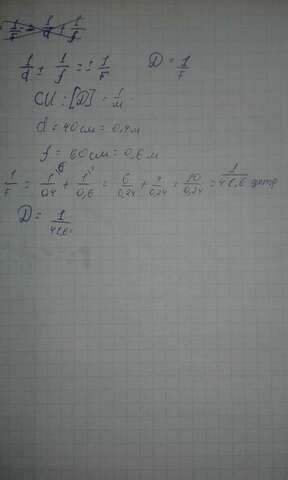 1/F = 1/d ± 1/f
1/d ± 1/f = ± 1/F D = 1/F
СИ: [D] = 1/м
d = 40 см = 0,4 м
f = 60 см = 0,6 м
1/F = 1/0,4 + 1/0,6 = 6/0,24 + 4/0,24 = 10/0,24 = 1/41,6 дптр
D = 1/41,6